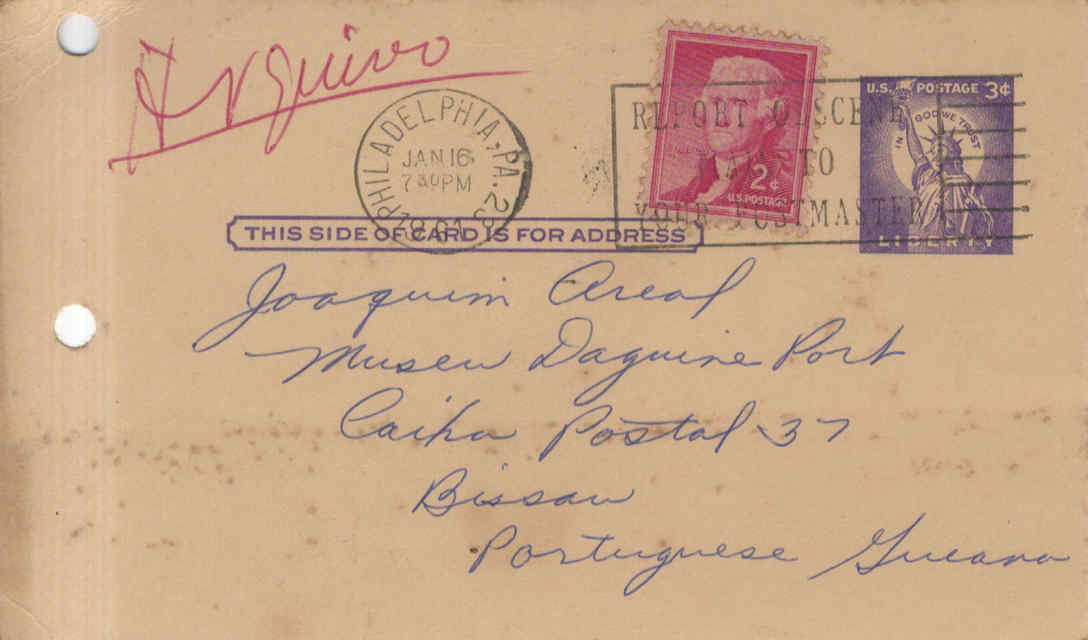 Arquivo
PHILADELPHIA, PA. 23
JAN 16
7 30 PM
1961
REPORT OBSCENE
MAIL TO
YOUR POSTMASTER
2¢
U.S. POSTAGE
U.S. POSTAGE 3¢
IN GOD WE TRUST
LIBERTY
THIS SIDE OF CARD IS FOR ADDRESS
Joaquim Areal
Museu Daguine Port
Caiha Postal 37
Bissau
Portuguese Gueana